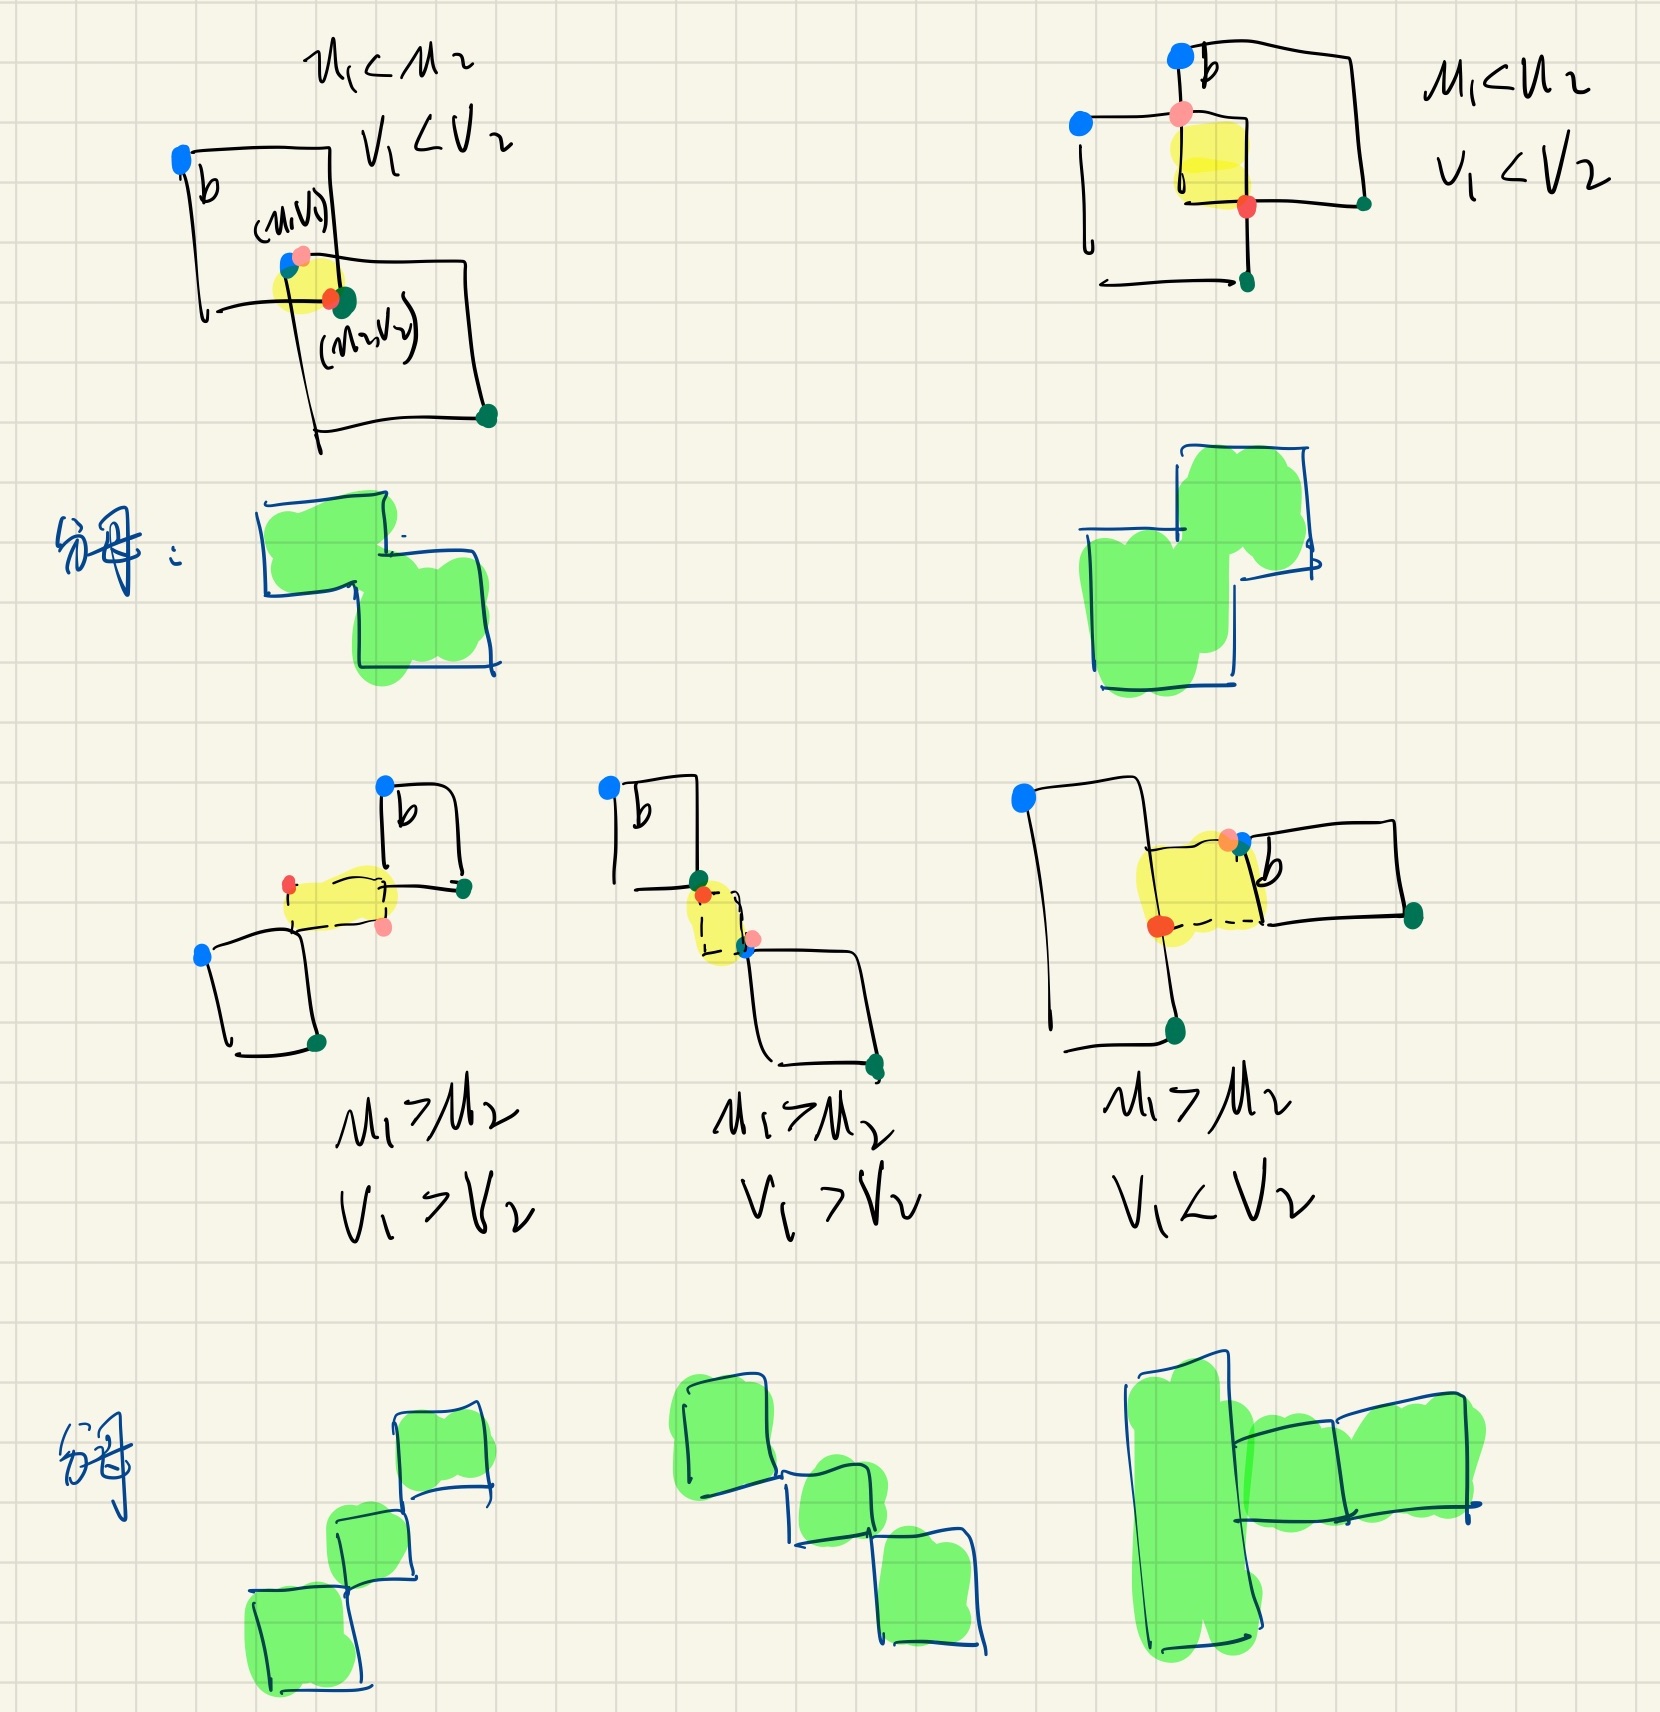 u₁<u₂
V₁<V₂
b
(u₁V₁)
(u₂,V₂)
b
u₁<u₂
V₁<V₂
分母：
b
b
b
u₁>u₂
V₁>V₂
u₁>u₂
V₁>V₂
u₁>u₂
V₁<V₂
分母